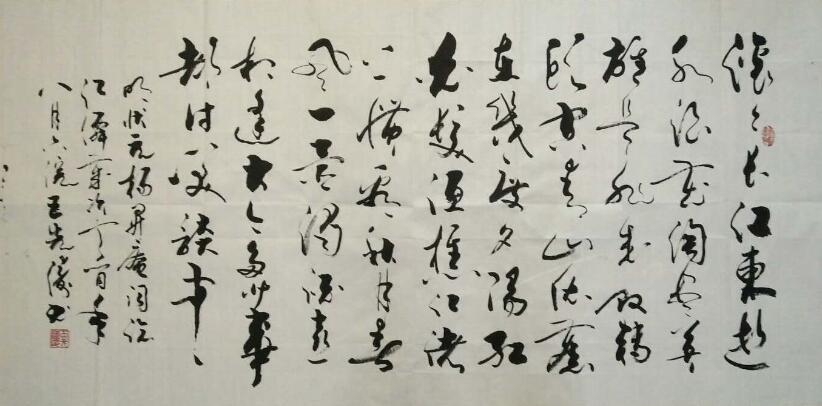 滚滚长江东逝
水浪花淘尽英
雄是非成败转
头空青山依旧
在几度夕阳红
白发渔樵江渚
上惯看秋月春
风一壶浊酒喜
相逢古今多少事
都付笑谈中
明状元杨升庵阕临
江仙
八月六